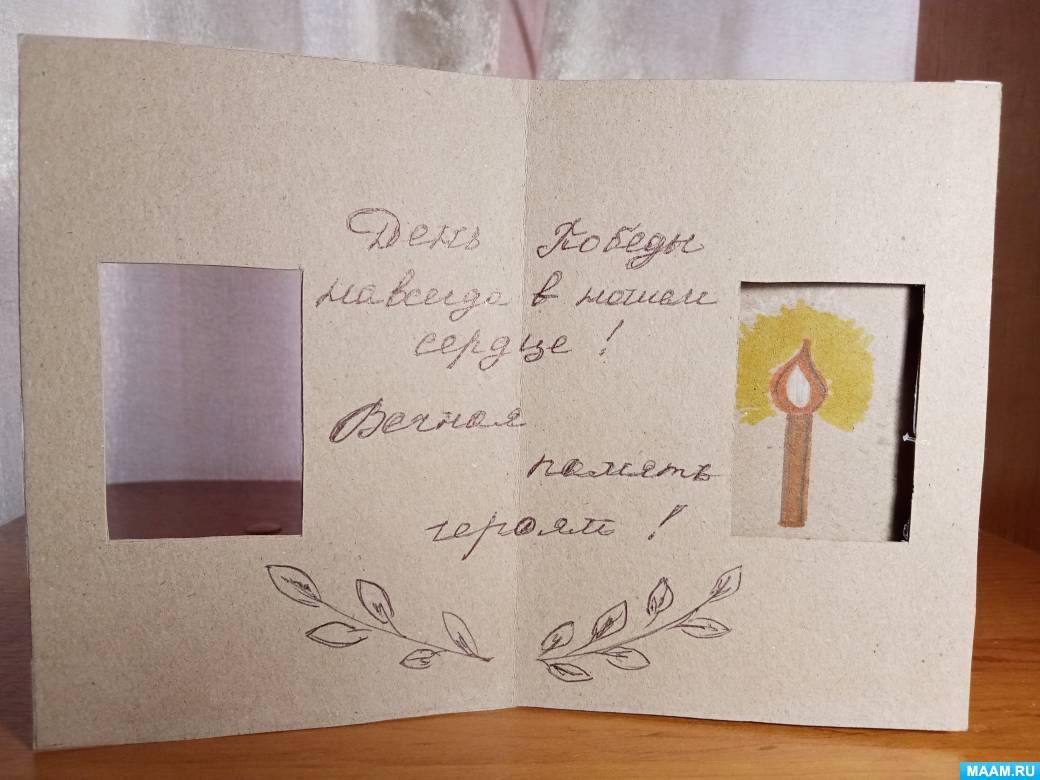 День Победы
навсегда в нашем
сердце !
Вечная
память
героям !
MAAM.RU